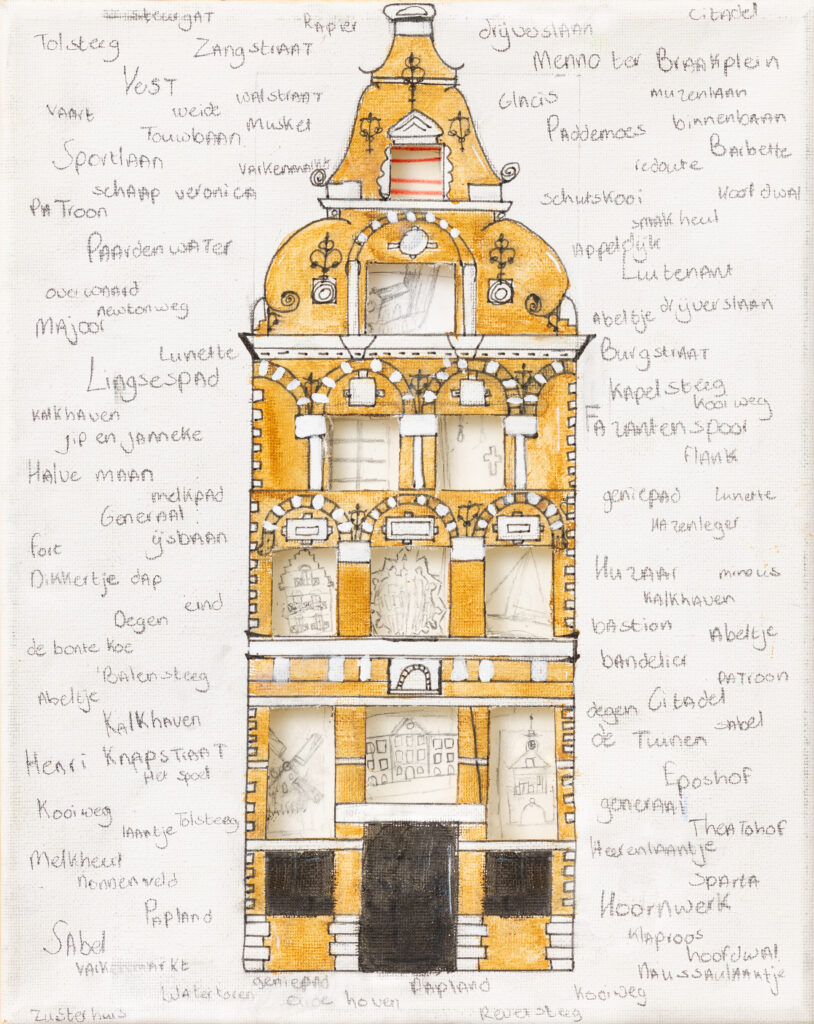 steurgat
Rapier
Citadel
Tolsteeg
Zangstraat
drijverslaan
Menno ter Braakplein
Vest
walstraat
Glacis
muzenlaan
vaart
weide
Touwbaan
Musket
Paddemoes
binnenbaan
Barbette
Sportlaan
varkenmarkt
redoute
schaap veronica
schutskooi
hoofdwal
Patroon
smakheul
Paardenwater
Appeldijk
Luitenant
overwaard
newtonweg
Majoor
Abeltje
drijverslaan
Lunette
Burgstraat
Lingsespad
Kapelsteeg
Kooiweg
Kalkhaven
Fazantenspoor
jip en janneke
flank
Halve maan
melkpad
geniepad
Lunette
Generaal
Hazenleger
fort
ijsbaan
Dikkertje dap
Huzaar
minous
Kalkhaven
eind
Degen
bastion
Abeltje
de bonte koe
bandelier
Balensteeg
Patroon
Abeltje
degen
Citadel
Kalkhaven
Sabel
de Tuinen
Henri Knapstraat
Het spoel
Eposhof
Kooiweg
generaal
laantje
Tolsteeg
Theatohof
Melkheul
Heerenlaantje
nonnenveld
Sparta
Papland
Hoornwerk
Klaproos
Sabel
hoofdwal
varkenmarkt
Naussaulaantje
geniepad
Papland
Watertoren
oude hoven
Kooiweg
zusterhuis
Reversteeg